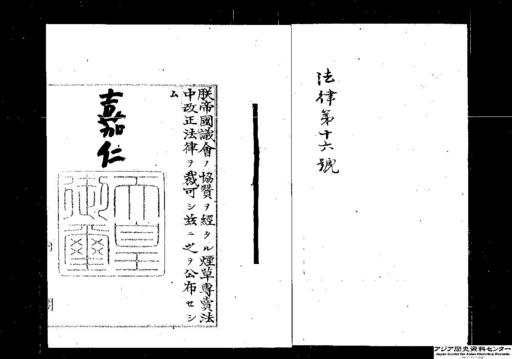 法律第十六號
朕帝國議會ノ協賛ヲ經タル煙草專賣法
中改正法律ヲ裁可シ茲ニ之ヲ公布セシ
ム
嘉仁
天皇御璽
アジア歴史資料センター
Japan Center for Asian Historical Records